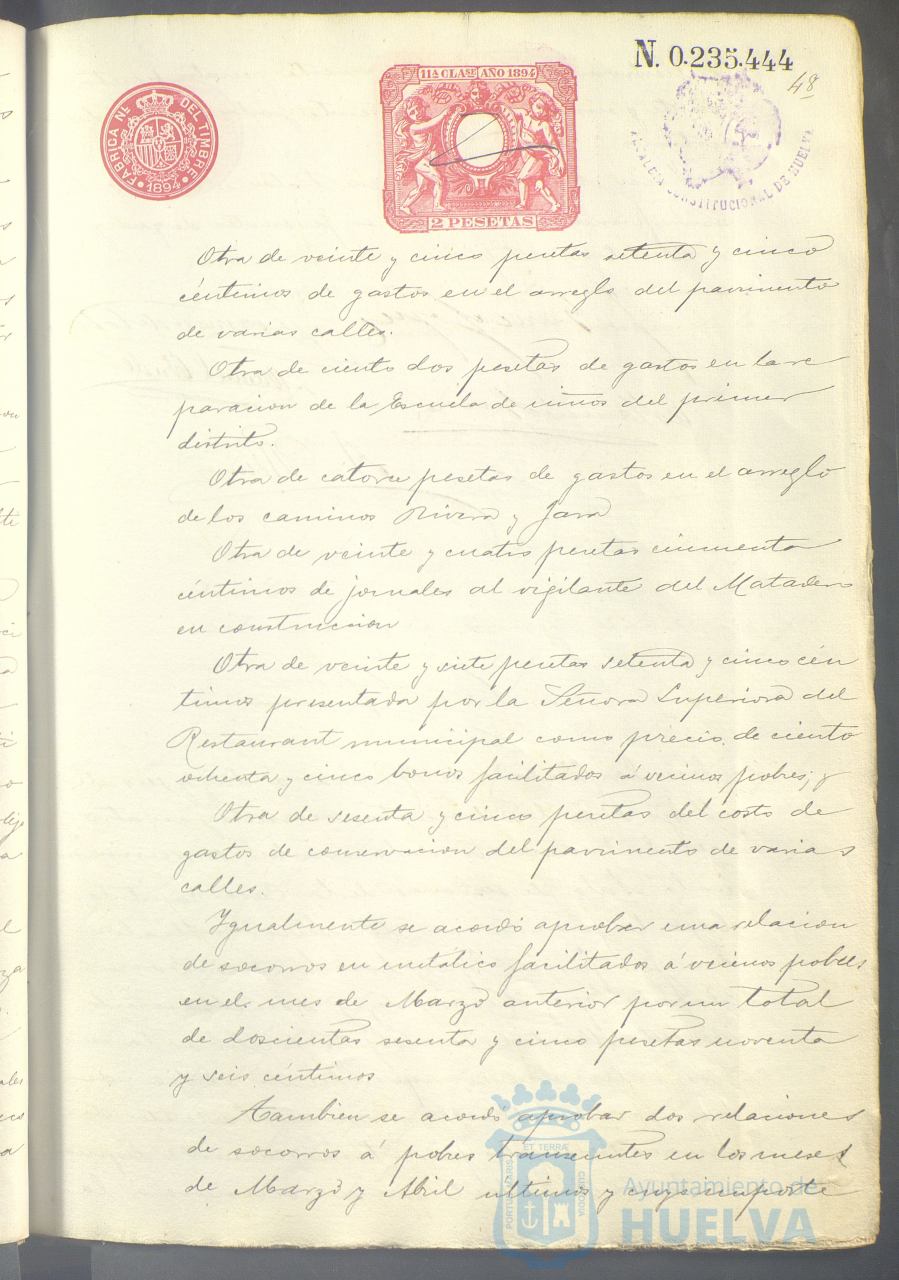 N. 0.235.444
48
FÁBRICA NAL DEL TIMBRE
1894
11ª CLASE AÑO 1894
2 PESETAS
ALCALDIA CONSTITUCIONAL DE HUELVA
Otra de veinte y cinco pesetas setenta y cinco
céntimos de gastos en el arreglo del pavimento
de varias calles.
Otra de ciento dos pesetas de gastos en la re
paracion de la Escuela de niños del primer
distrito.
Otra de catorce pesetas de gastos en el arreglo
de los caminos Rivera y Jara
Otra de veinte y cuatro pesetas cincuenta
céntimos de jornales al vigilante del Matadero
en construccion
Otra de veinte y siete pesetas setenta y cinco cén
timos presentada por la Señora Superiora del
Restaurant municipal como precio de ciento
ochenta y cinco bonos facilitados á vecinos pobres; y
Otra de sesenta y cinco pesetas del costo de
gastos de conservacion del pavimento de varias
calles.
Igualmente se acordó aprobar una relacion
de socorros en metálico facilitados á vecinos pobres
en el mes de Marzo anterior por un total
de doscientas sesenta y cinco pesetas noventa
y seis céntimos
Tambien se acordó aprobar dos relaciones
de socorros á pobres transeuntes en los meses
de Marzo y Abril ultimos y cuyo importe
PORTUS MARIS ET TERRAE CUSTODIA
Ayuntamiento de
HUELVA